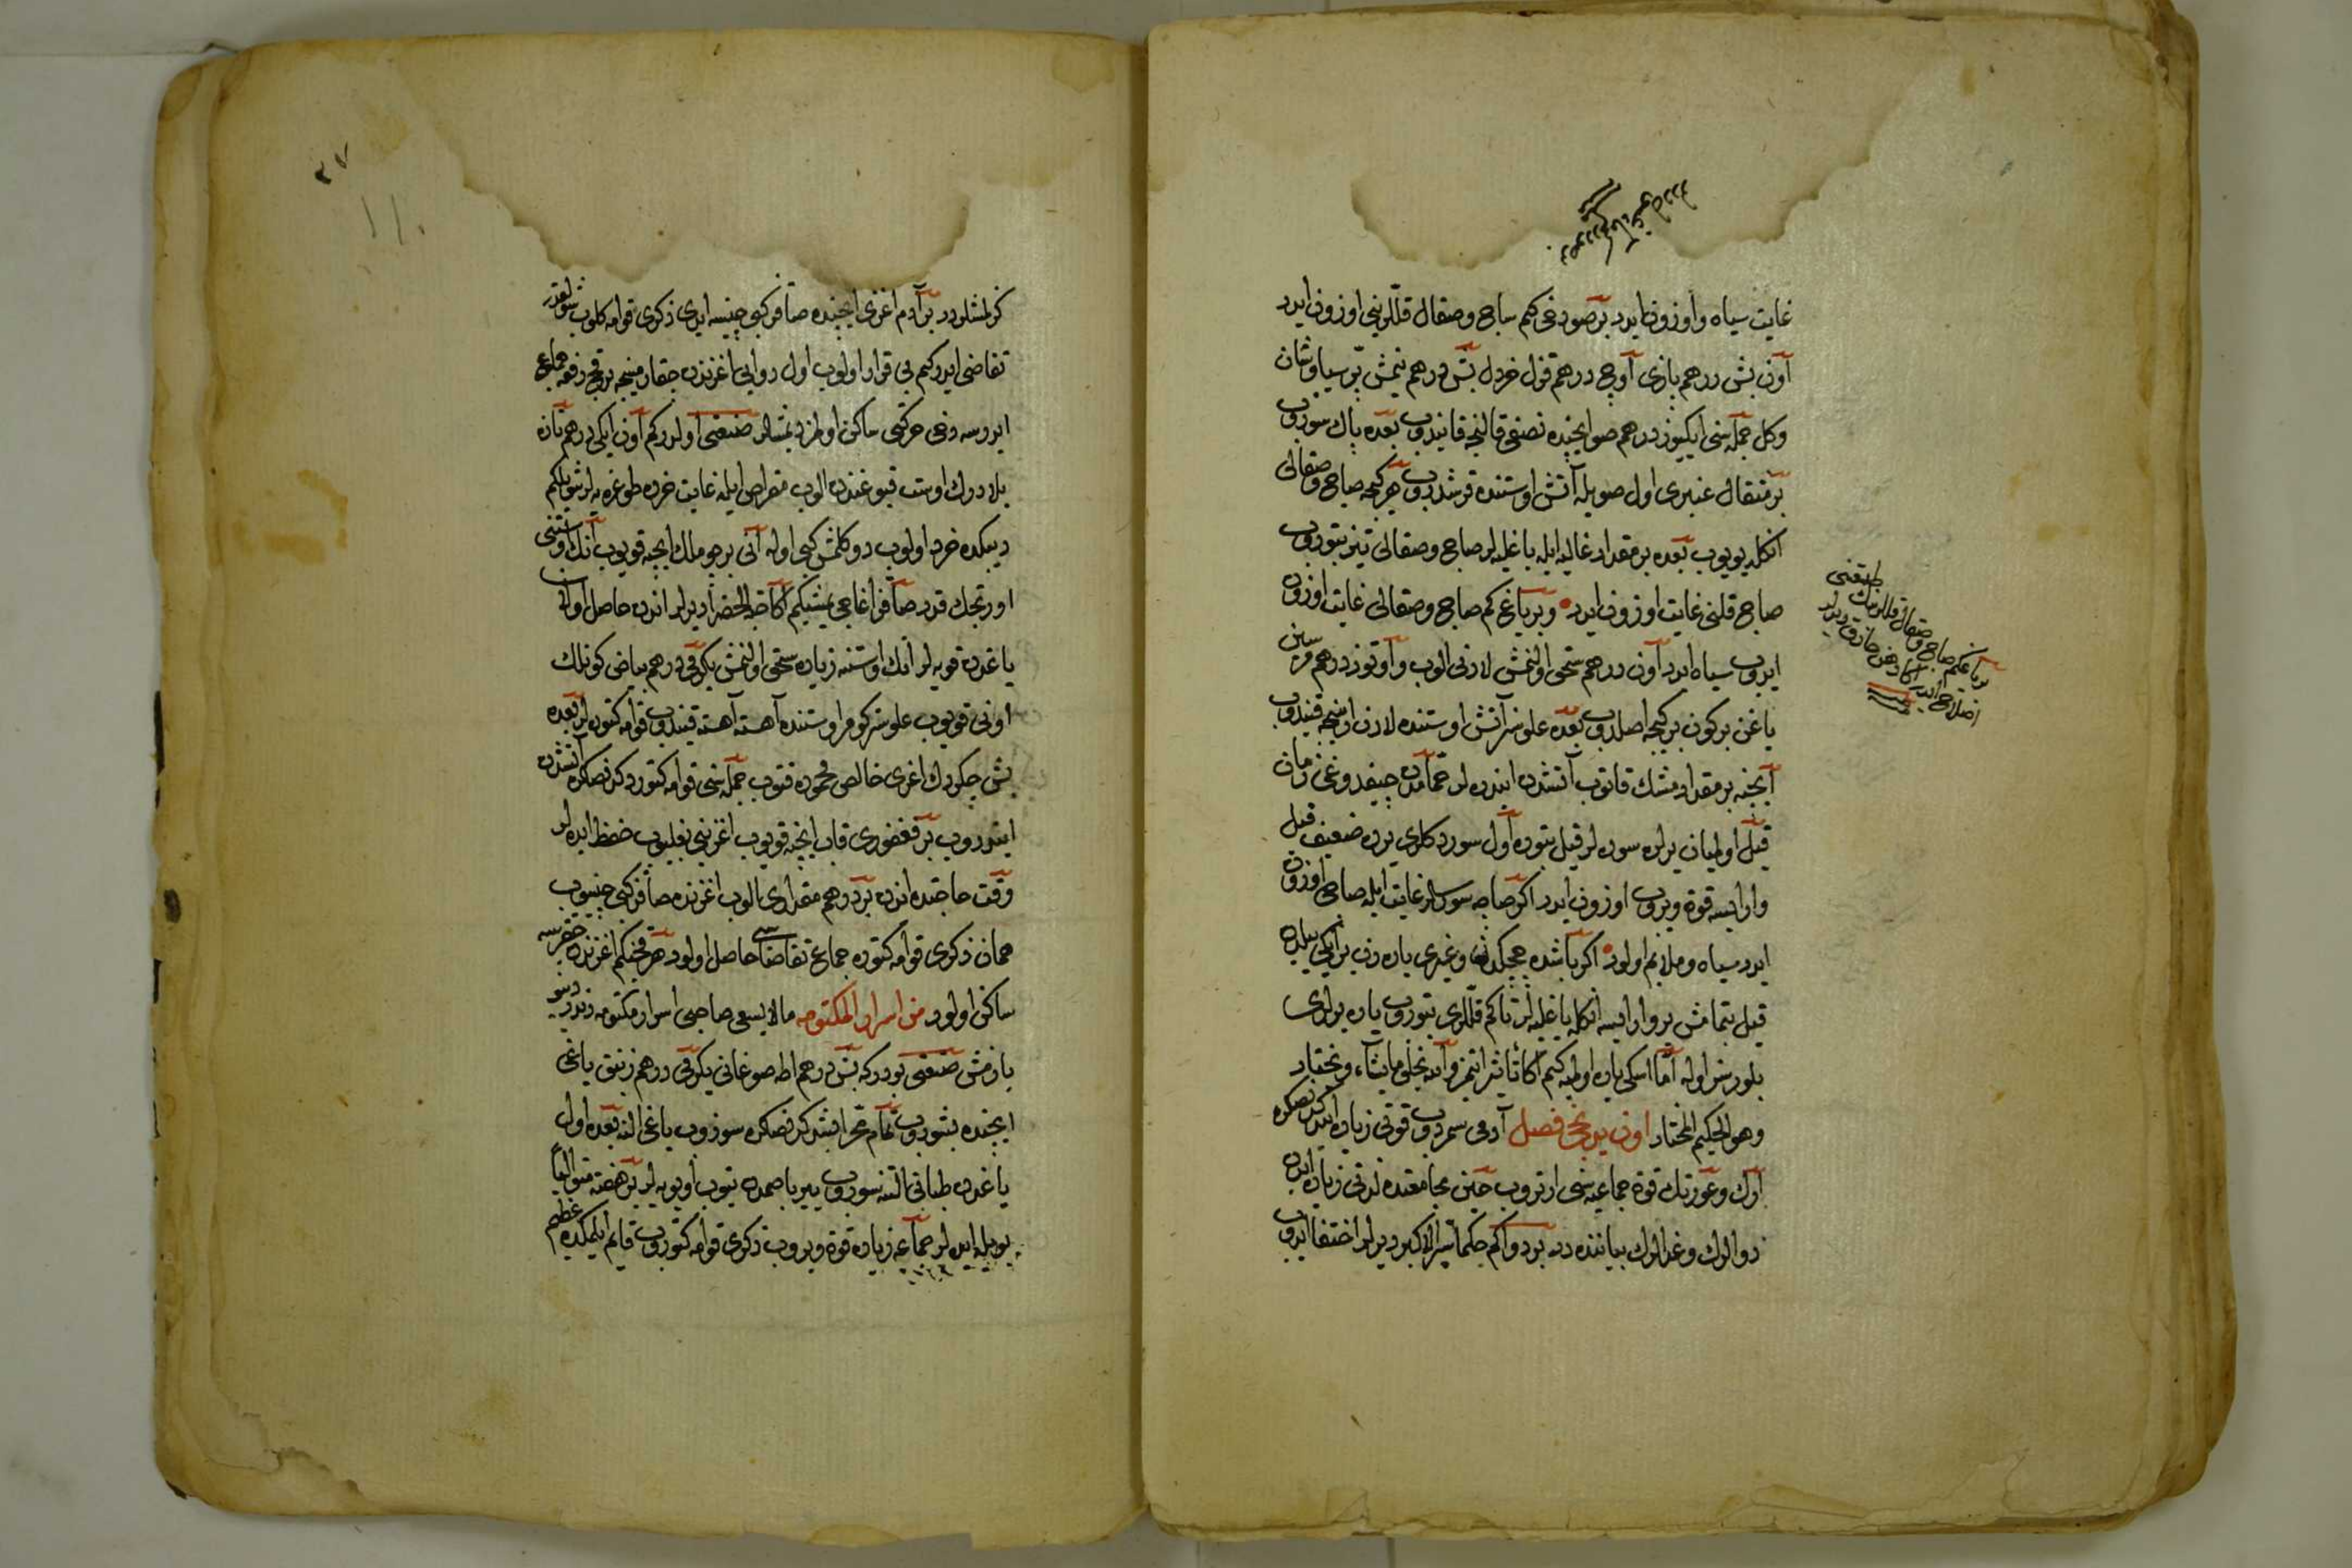 غايت سياه و اوزون ايدر بر صو دخى كم ساج و صقال قللرينى اوزون ايدر
اون بش درهم بازى اوج درهم قزل خردل بش درهم يتمش بر سياوشان
وكل جمله سنى ايكيوز درهم صو ايچنده نصفى قالنجه قايندوب بعده پاك سوزوب
بر مثقال عنبرى اول صويله آتش اوستنده قرشدروب هر كيجه صاج و صقالى
انكله يويوب بعده بر مقدار غاليه ايله ياغليه لر صاج و صقالى تيز بتوروب
صاج قلنى غايت اوزون ايدر و بر ياغ كم صاج و صقالى غايت اوزون
ايدوب سياه ايدر اون درهم سحق اولنمش لادنى الوب و اوتوز درهم مرسين
ياغن بر كون بر كيجه اصلدوب بعده علوسز آتش اوستنده لادن ارينجه قيندوب
ايچنه بر مقدار مشك قاتوب آتشدن ايندره لر حمامدن چيقدوغى زمان
قيل اولميان يرلره سوره لر قيل بتوره اول سورد كلرى يرده ضعيف قيل
وار ايسه قوة ويروب اوزون ايدر اكر صاجه سورسه لر غايت ايله صاجى اوزون
ايدر سياه و ملايم اولور اكر باشده چچكدن و غيرى ياره دن بر ايكى ييلدن
قيل بتمامش ير وار ايسه انكله ياغليه لر تا كم قللرى بتوروب ياره يرلرى
بلورسز اوله اما اسكى ياره اوليه كيم اكا تاثير ايتمز والله يخلق مايشاء و يختار
وهو الحكيم المختار اون يدنجى فصل آدمى سمردوب قوتى زياده ايدكدنصكره
ارك و عورتك قوة جماعيه سنى ارتروب حين مجامعتده لذتى زياده ايدن
دوالرك و غدالرك بياننده در بر دوا كم حكما سر الاكبر ديرلر اختفا ايدوب
بر ياغ كم صاج و صقال قللرينك
كزلمشلردر بر آدم اغزى ايچنده صاقز كبى چينسه ايدى ذكرى قوامه كلوب شولقدر
تقاضى ايدر كم بى قرار اولوب اول دوايى اغزندن چقارمينجه بر قچ دفعه جماع
ايدرسه دخى حركتى ساكن اولمز ديمشلر صنعتى اولدر كم اون ايكى درهم تازه
ديبكده خرد اولوب دوكلمش كبى اوله آنى بر چوملك ايچنه قويوب آنك اوستنى
اورتجك قدر صاقز اغاجى يمشيكم اكا حبة الخضرا ديرلر اندن حاصل اولان
ياغدن قويه لر انك اوستنه زياده سحق اولنمش يكرمى درهم بياض كونلك
اونى قويوب علوسز كومر اوستنده آهسته آهسته قيندوب قوامه كتوره لر بعده
بش چكردك اغرى خالص محموده قتوب جمله سنى قوامه كتوردكدنصكره آتشدن
ايندوروب بر فغفورى قاب ايچنه قويوب اغزينى بغليوب حفظ ايده لر
وقت حاجتده اندن بر درهم مقدارى الوب اغزنده صاقز كبى چينيوب
همان ذكرى قوامه كتوره جماع تقاضاسى حاصل اولور هر قچنكم اغزندن چقرسه
ساكن اولور من اسرار المكتومه مالا يسعى صاحبى اسرار مكتومه دندر ديو
يازمش صنعتى بودر كه بش درهم اطه صوغانى يكرمى درهم زنبق ياغى
ايچنده بشوروب تمام محرا بشدكدنصكره سوزوب ياغى النه بعده اول
ياغدن طبانى التنه سوروب ييره باصمدن يتوب اويويه لر بر هفته متواليا
بويله ايده لر جماعه زياده قوة ويروب ذكرى قوامه كتوروب قايم ايلمكده عظيم
٣٧